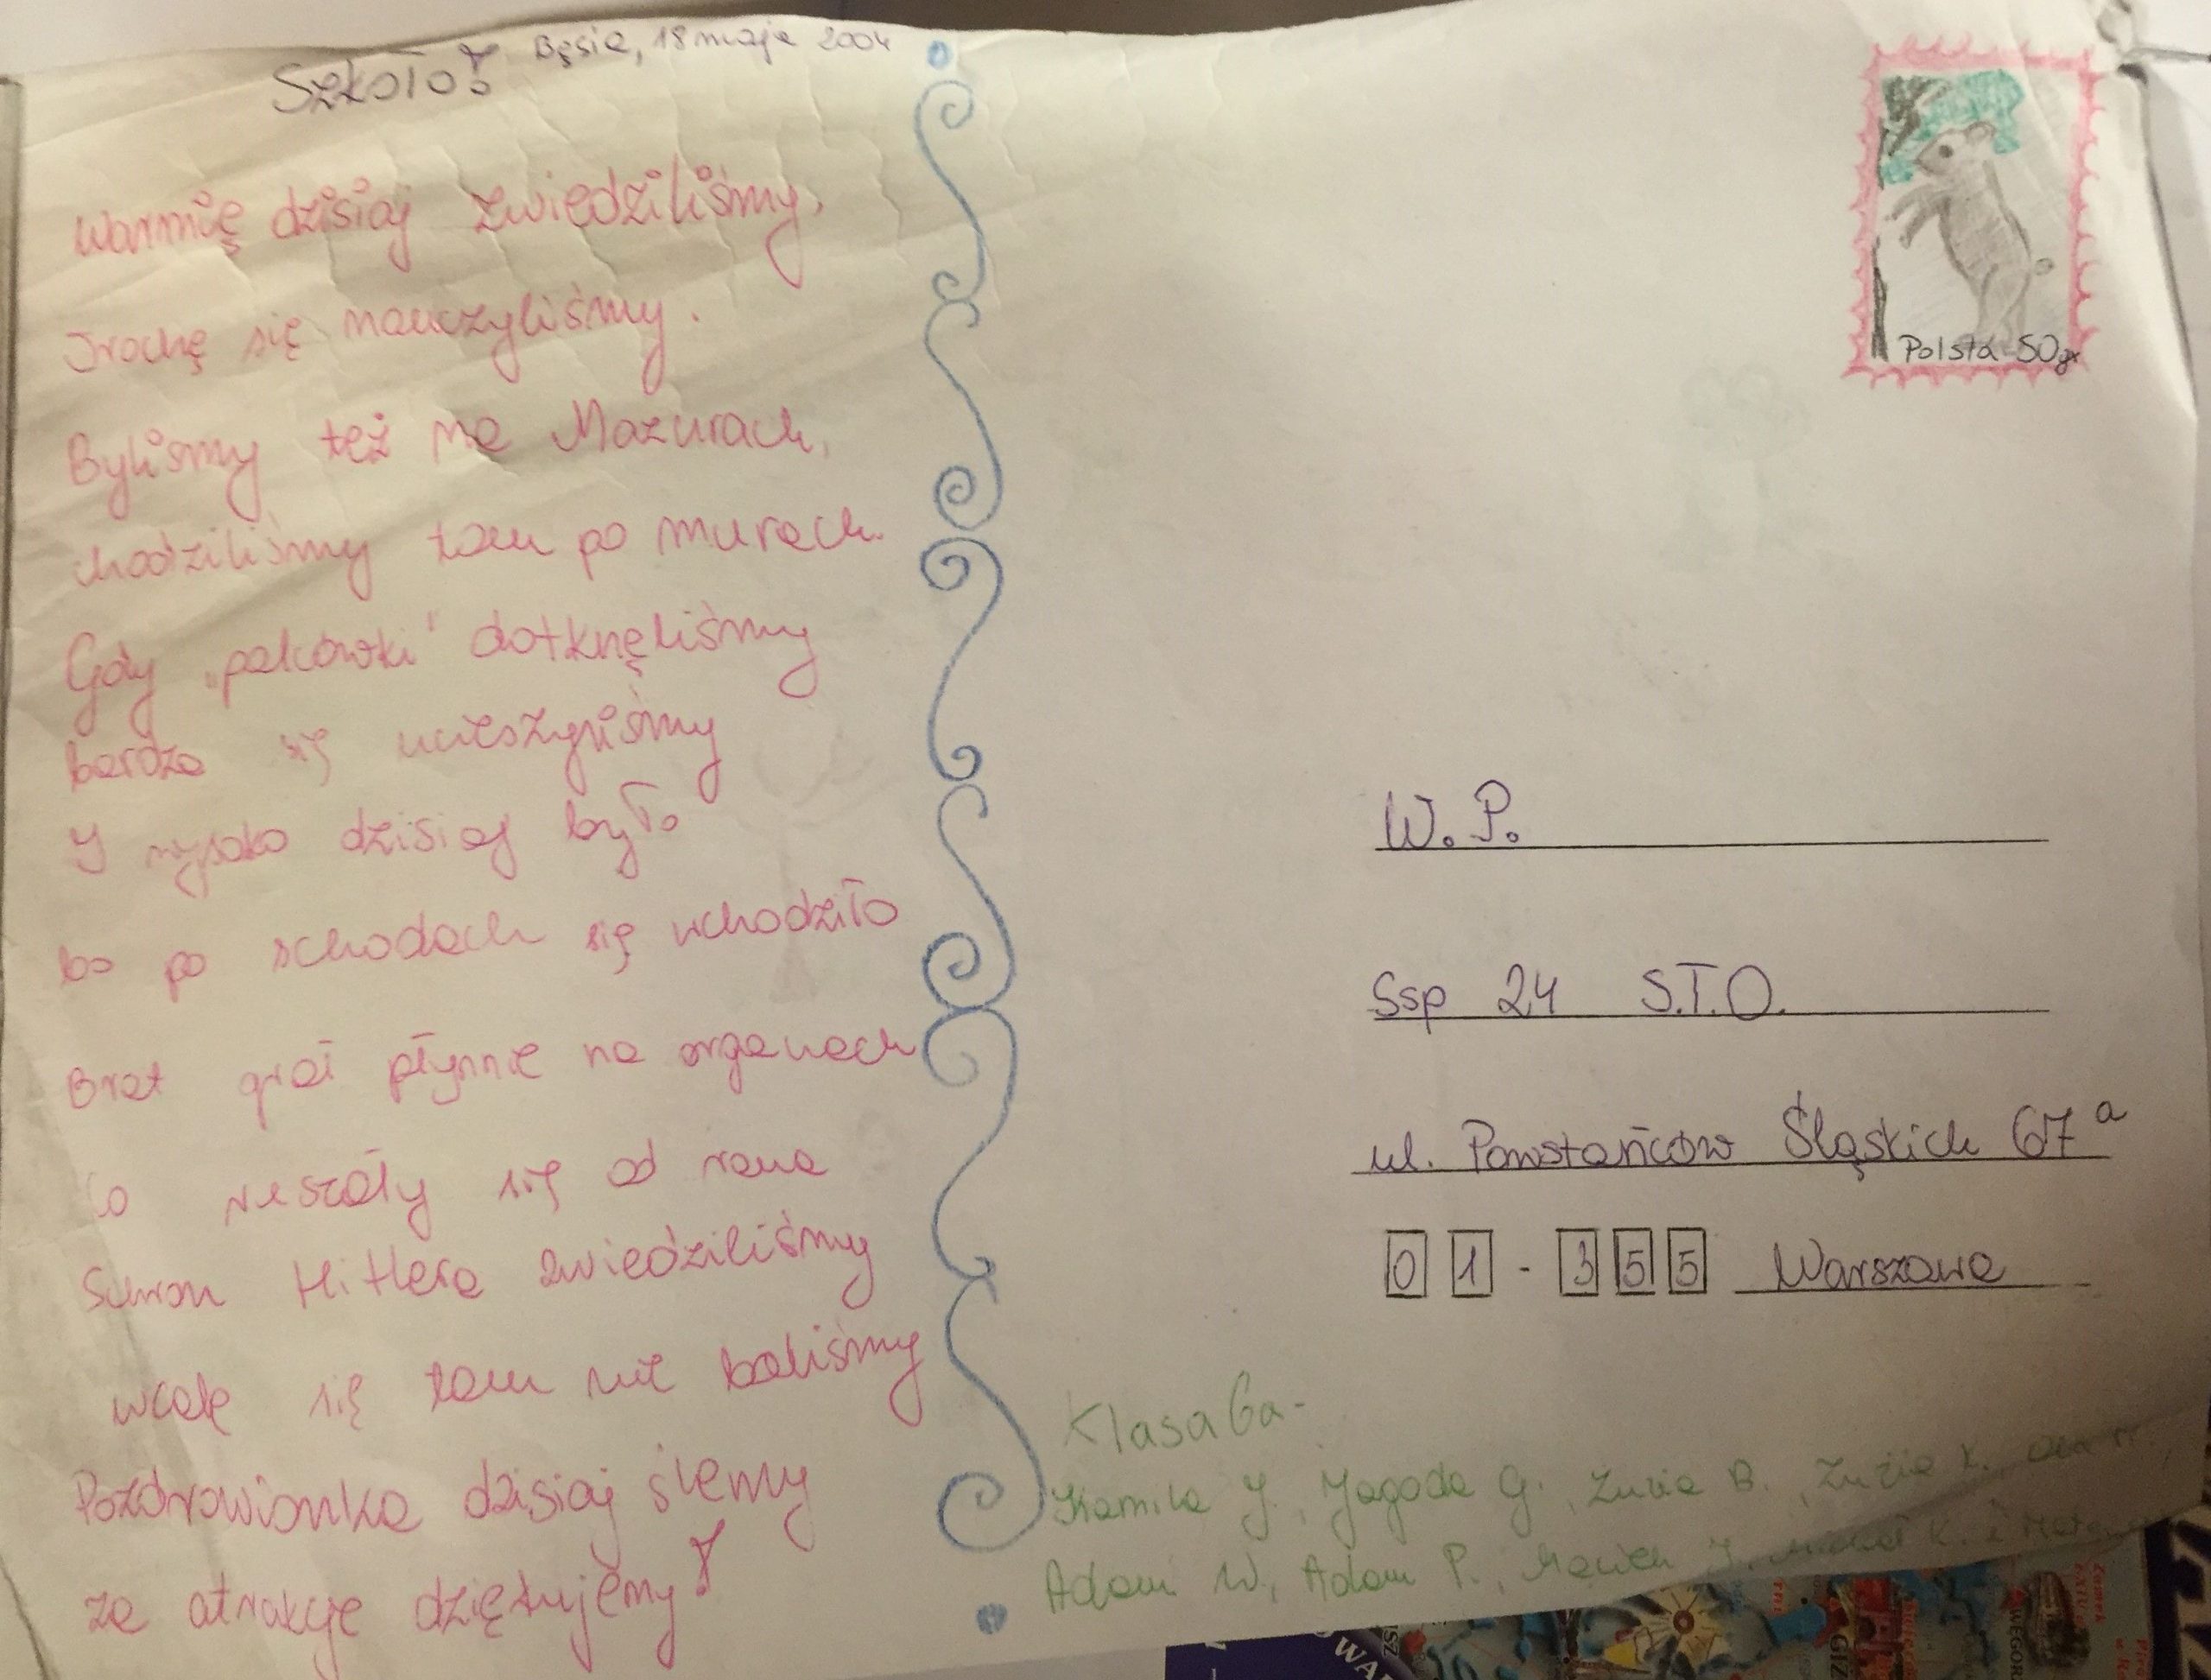 Bęsia, 18 maja 2004
Szkoło!
Warmię dzisiaj zwiedziliśmy,
Trochę się nauczyliśmy.
Byliśmy też na Mazurach,
chodziliśmy tam po murach.
Gdy „palcówki" dotknęliśmy
bardzo się ucieszyliśmy
I wysoko dzisiaj było
bo po schodach się wchodziło
Brat grał płynnie na organach
co ruszały się od rana
Schron Hitlera zwiedziliśmy
wcale się tam nie baliśmy
Pozdrowionka dzisiaj ślemy
za atrakcje dziękujemy!
Polska 50gr
W. P.
Ssp 24 S.T.O.
ul. Powstańców Śląskich 67 a
01-355 Warszawa
Klasa 6a-
Kamila J., Jagoda G., Zuzia B., Zuzia K., Ola
Adam W., Adam P., Maciek J., Michał K. i